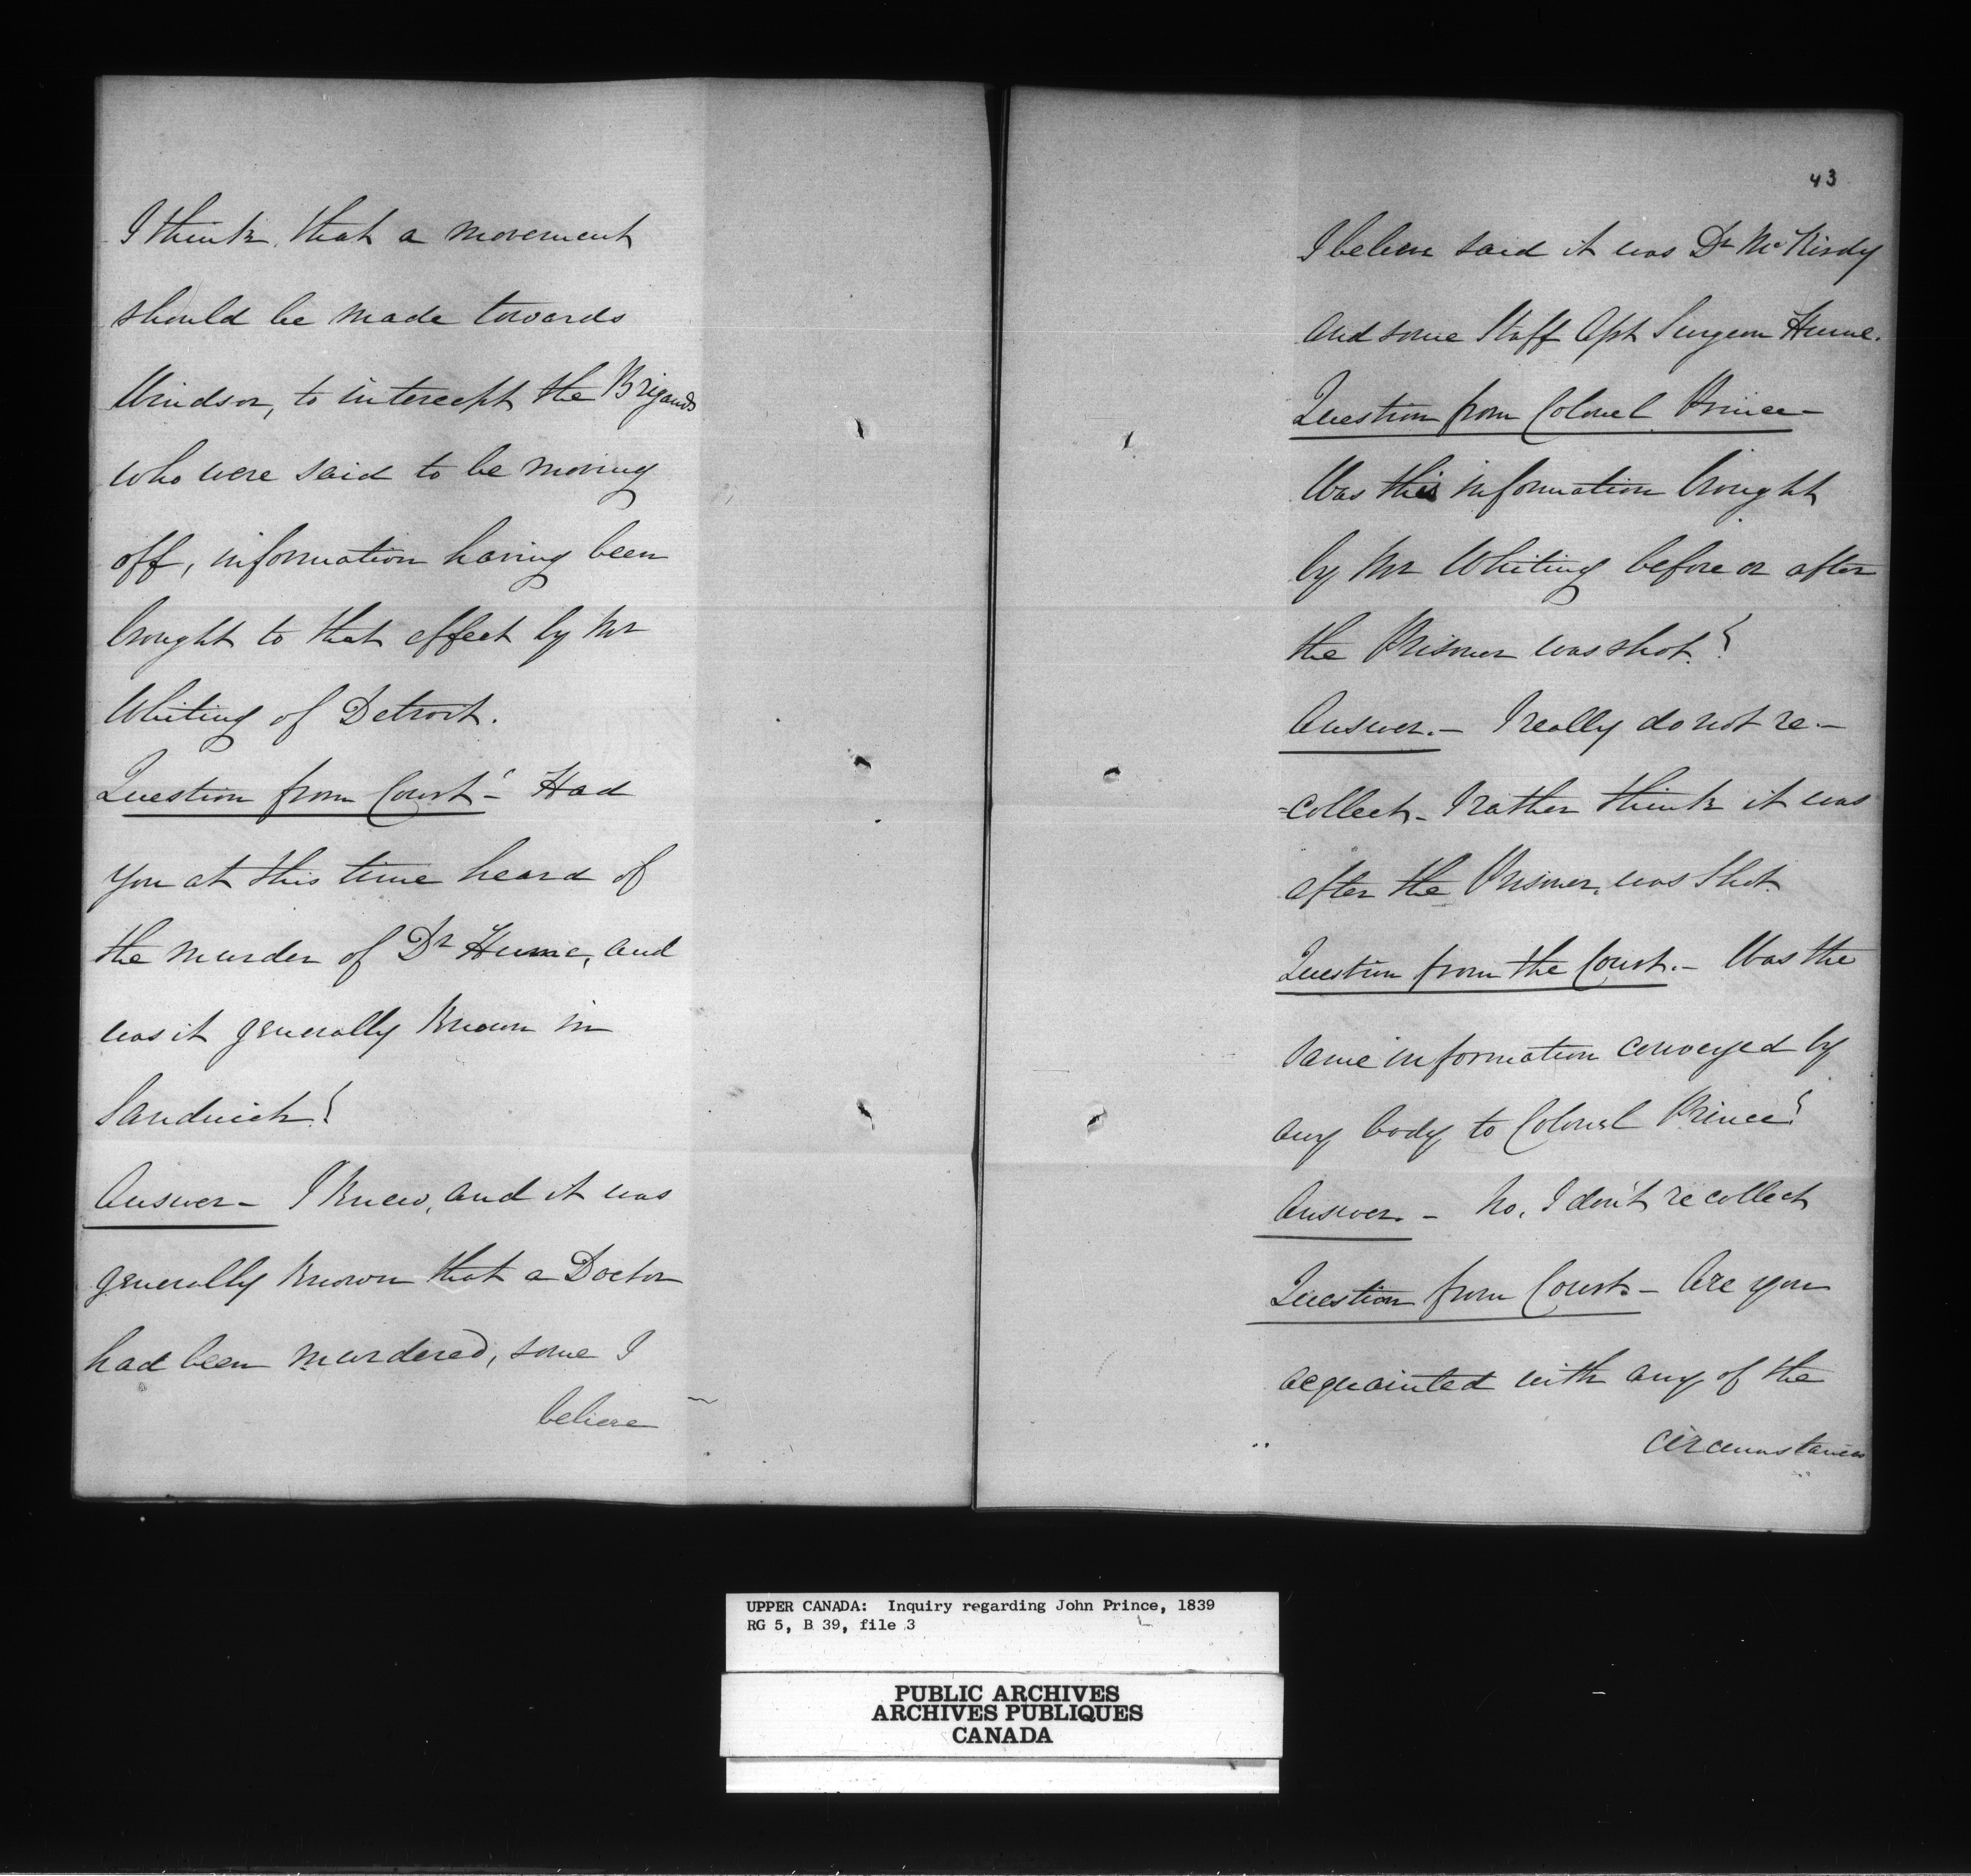 I think, that a movement
should be made towards
Windsor, to intercept the Brigands
who were said to be moving
off, information having been
brought to that effect by Mr
Whiting of Detroit.
Question from Court - Had
you at this time heard of
the murder of Dr Hume, and
was it generally known in
Sandwich?
Answer - I knew, and it was
generally known that a Doctor
had been murdered, some I
believe
43
I believe said it was Dr McKirdy
and some Staff Asst Surgeon Hume.
Question from Colonel Prince -
Was this information brought
by Mr Whiting before or after
the Prisoner was shot?
Answer. - I really do not re-
=collect - I rather think it was
after the Prisoner was shot.
Question from the Court. - Was the
same information conveyed by
any body to Colonel Prince?
Answer. - No, I don't recollect
Question from Court - Are you
acquainted with any of the
circumstances
UPPER CANADA: Inquiry regarding John Prince, 1839
RG 5, B 39, file 3
PUBLIC ARCHIVES
ARCHIVES PUBLIQUES
CANADA